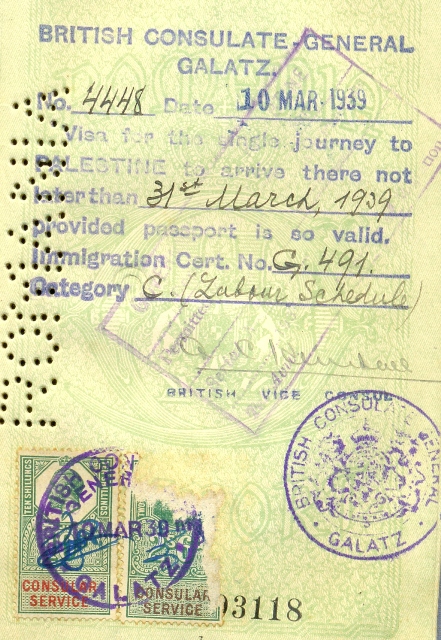 BRITISH CONSULATE-GENERAL
GALATZ.
No. 4448 Date 10 MAR·1939
Visa for the single journey to
PALESTINE to arrive there not
later than 31st March, 1939
provided passport is so valid.
Immigration Cert. No. G. 491.
Category C. (Labour Schedule)
BRITISH VICE CONSUL
BRITISH CONSULATE GENERAL
GALATZ
TEN SHILLINGS
10 MAR 39
GALATZ
CONSULAR
SERVICE
CONSULAR
SERVICE
03118